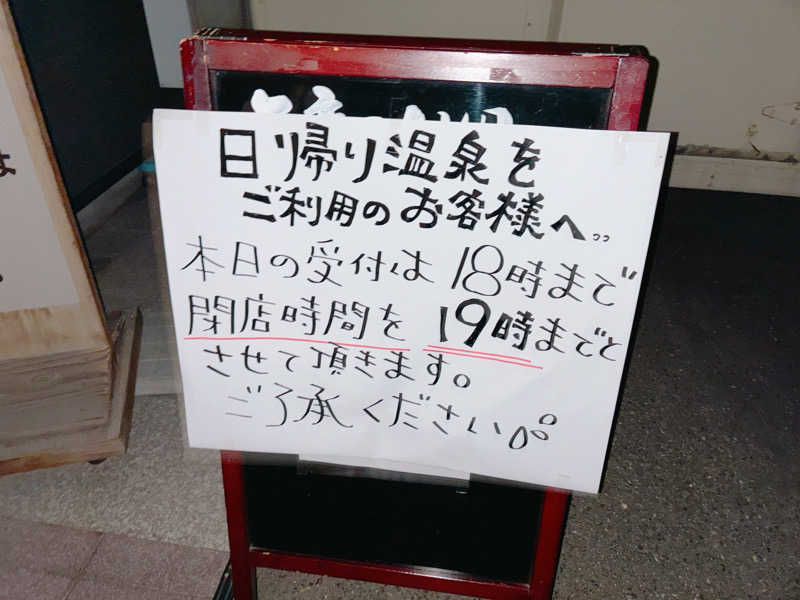 日り帰り温泉を
ご利用のお客様へ゛
本日の受付は 18時まで
閉店時間を 19時までと
させて頂きます。
ご了承くださいo。
は